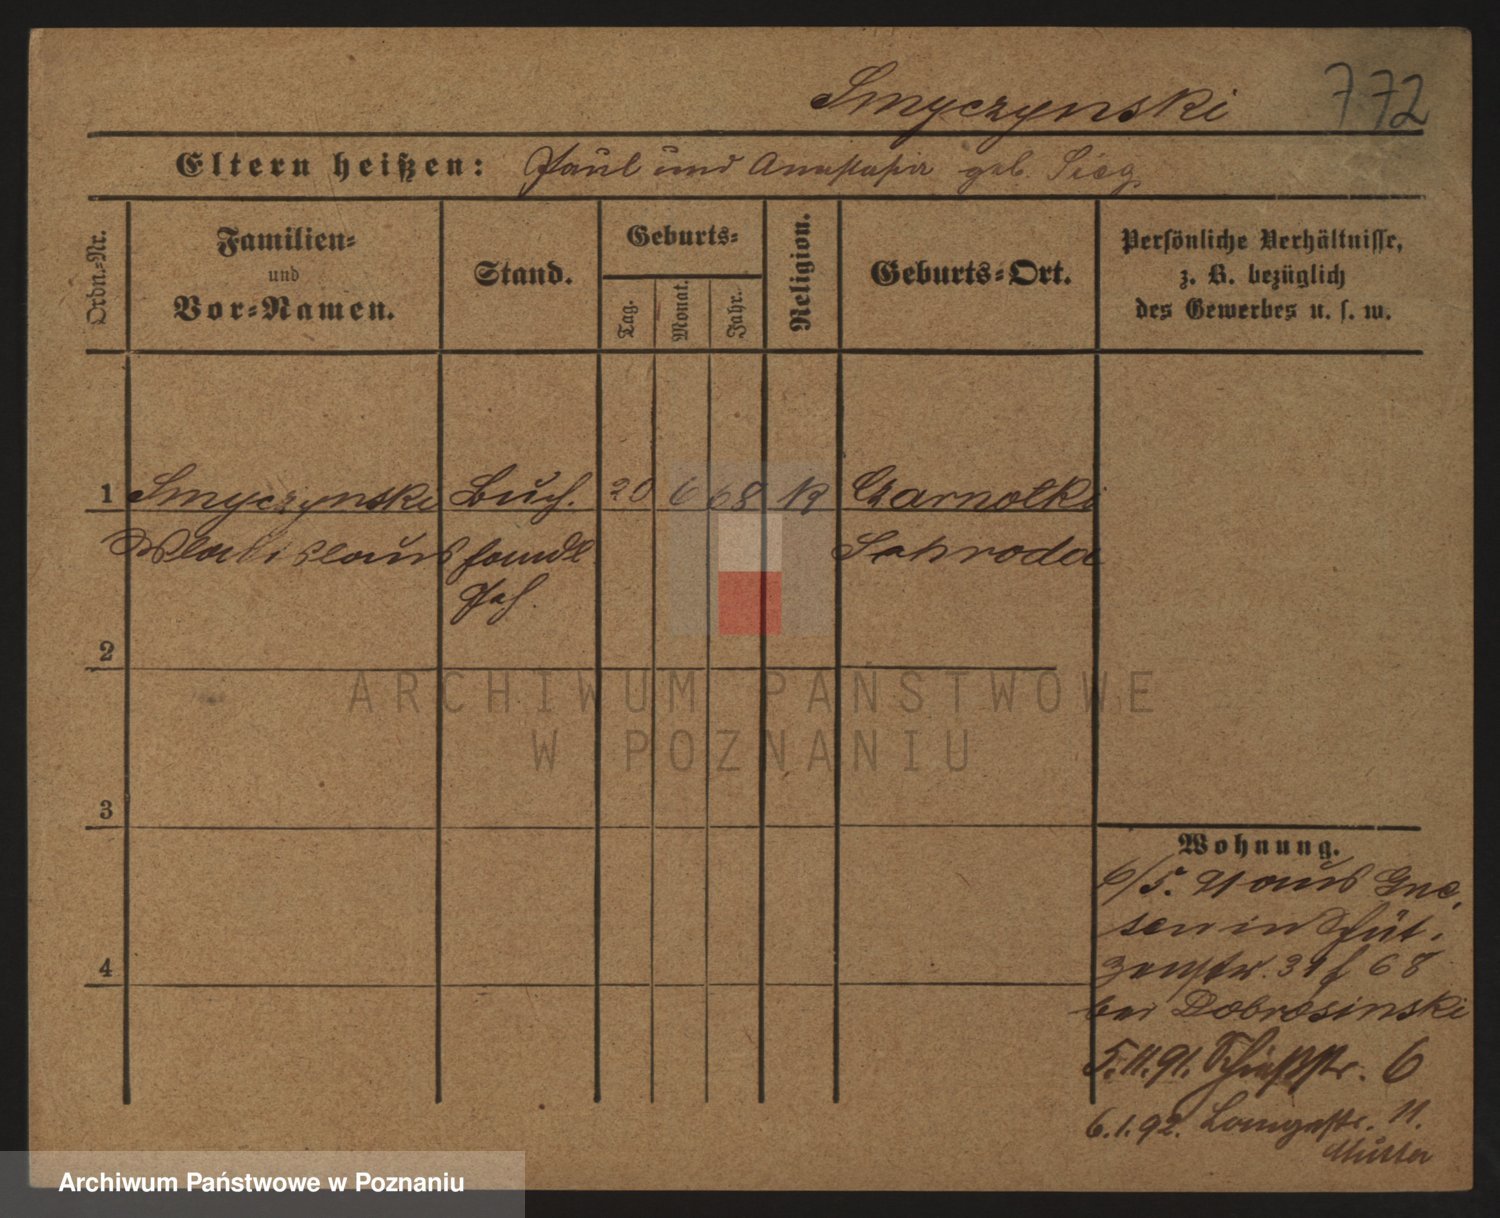 Smyczynski 772
Eltern heißen: Paul und Anastasia geb. Sieg
Ordn.-Nr.
Familien-
und
Vor-Namen.
Stand.
Geburts-
Tag.
Monat.
Jahr.
Religion.
Geburts-Ort.
Persönliche Verhältnisse,
z. B. bezüglich
des Gewerbes u. s. w.
1 Smyczynski Buch. 20 6 68 K Czarnotki
Wladislaus handl. Schroda
Geh.
2
3
4
Wohnung.
6/5. 91 aus Gne,
sen in Schüt,
zenstr. 31 f 68
bei Dobrosinski
5.11.91. Schießstr. 6
6.1.92. Langestr. 11.
Mutter
ARCHIWUM PAŃSTWOWE
W POZNANIU
Archiwum Państwowe w Poznaniu